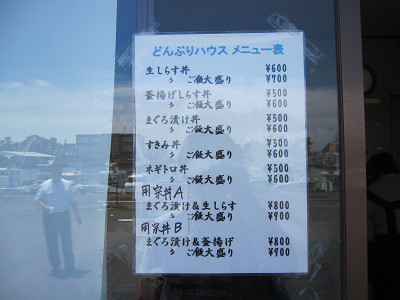 どんぶりハウス メニュー表
生しらす丼 ¥600
〃 ご飯大盛り ¥700
釜揚げしらす丼 ¥500
〃 ご飯大盛り ¥600
まぐろ漬け丼 ¥500
〃 ご飯大盛り ¥600
すきみ丼 ¥500
〃 ご飯大盛り ¥600
ネギトロ丼 ¥500
〃 ご飯大盛り ¥600
用宗丼A
まぐろ漬け&生しらす ¥800
〃 ご飯大盛り ¥900
用宗丼B
まぐろ漬け&釜揚げ ¥800
〃 ご飯大盛り ¥900